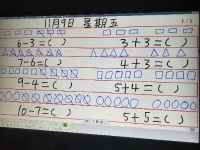 11月9日 星期五
1/1
6-3=( ) 3+3=( )
7-6=( ) 4+3=( )
9-4=( ) 5+4=( )
10-7=( ) 5+5=( )